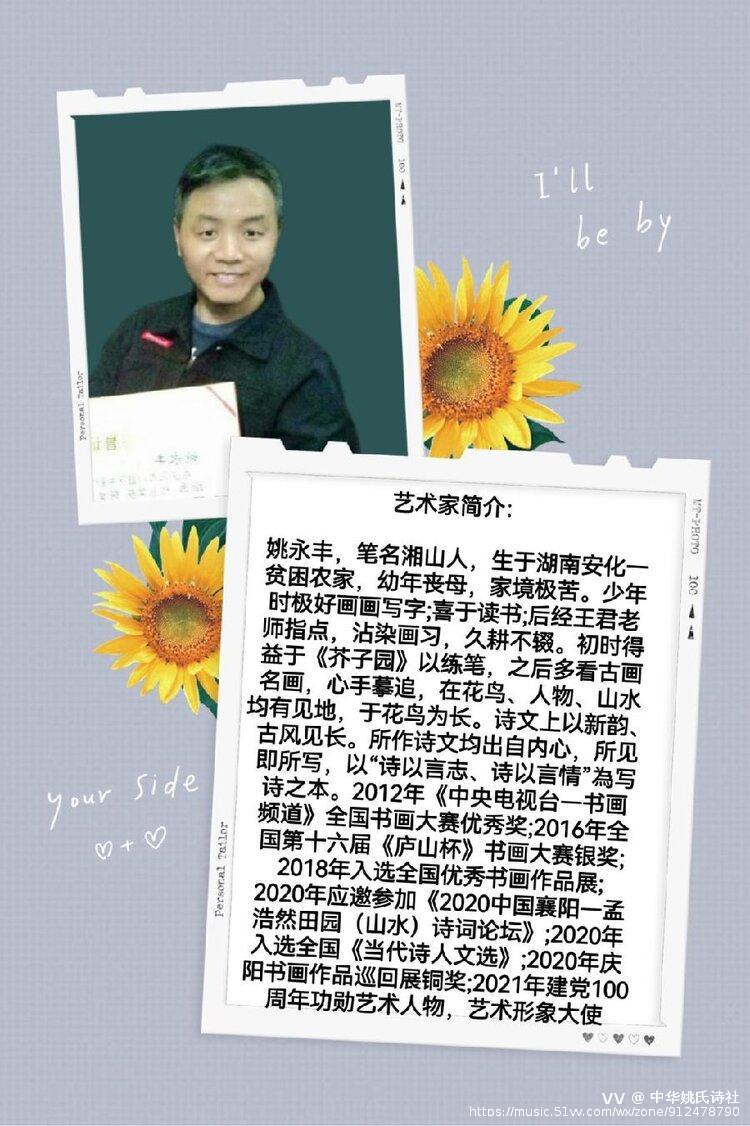 MT-PHOTO 100
I'll
be by
Personal Tailor
艺术家简介:
姚永丰，笔名湘山人，生于湖南安化一
贫困农家，幼年丧母，家境极苦。少年
时极好画画写字;喜于读书;后经王君老
师指点，沾染画习，久耕不辍。初时得
益于《芥子园》以练笔，之后多看古画
名画，心手摹追，在花鸟、人物、山水
均有见地，于花鸟为长。诗文上以新韵、
古风见长。所作诗文均出自内心，所见
即所写，以“诗以言志、诗以言情”為写
诗之本。2012年《中央电视台—书画
频道》全国书画大赛优秀奖;2016年全
国第十六届《庐山杯》书画大赛银奖;
2018年入选全国优秀书画作品展;
2020年应邀参加《2020中国襄阳—孟
浩然田园（山水）诗词论坛》;2020年
入选全国《当代诗人文选》;2020年庆
阳书画作品巡回展铜奖;2021年建党100
周年功勋艺术人物，艺术形象大使
MT-PHOTO 100
your side
Personal Tailor
VV @ 中华姚氏诗社
https://music.51vv.com/wx/zone/912478790